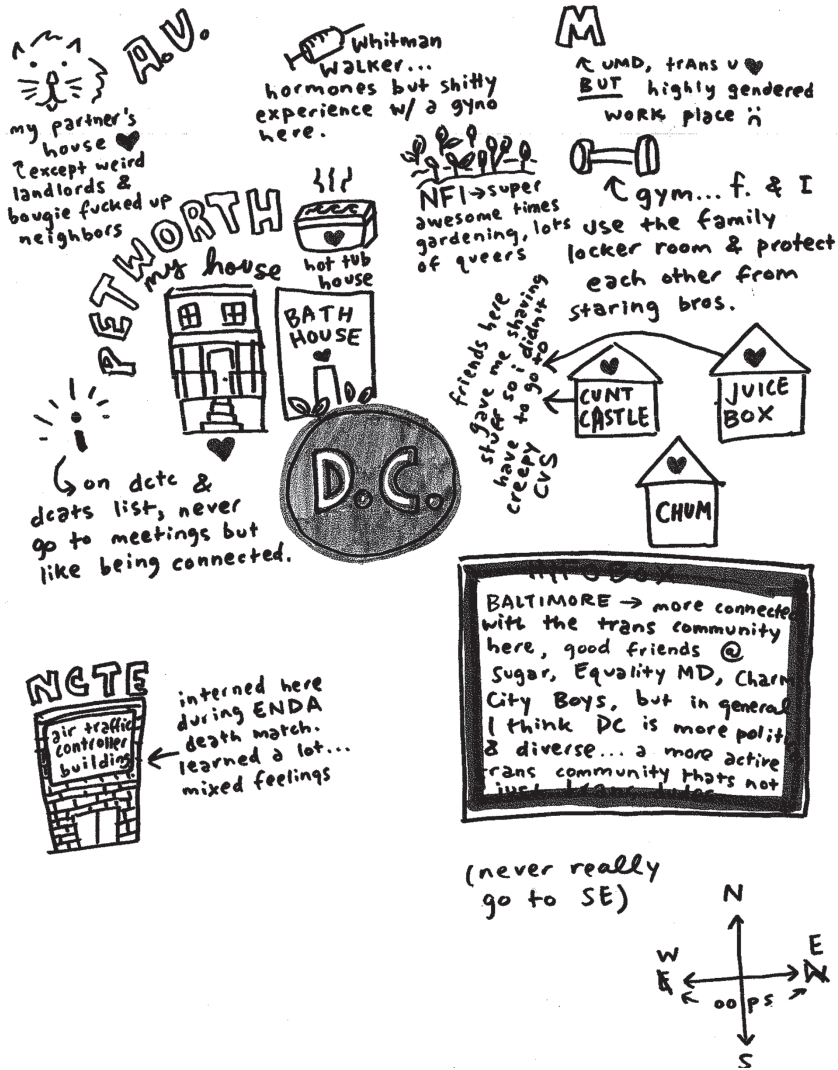 A.V.
my partner's
house
except weird
landlords &
bougie fucked up
neighbors
Whitman
Walker...
hormones but shitty
experience w/ a gyno
here.
M
UMD, trans u
BUT highly gendered
work place
NFI→super
awesome times
gardening, lots
of queers
gym... f. & I
use the family
locker room & protect
each other from
staring bros.
PETWORTH
my house
hot tub
house
BATH
HOUSE
friends here
gave me shaving
stuff so i didn't
have to go to
creepy
CVS
CUNT
CASTLE
JUICE
BOX
CHUM
i
on dctc &
dcats list, never
go to meetings but
like being connected.
D.C.
BALTIMORE → more connected
with the trans community
here, good friends @
Sugar, Equality MD, Charm
City Boys, but in general
I think DC is more polit
& diverse... a more active
trans community thats not
just
NCTE
air traffic
controller
building
interned here
during ENDA
death match.
learned a lot...
mixed feelings
(never really
go to SE)
N
W
E
oops
S